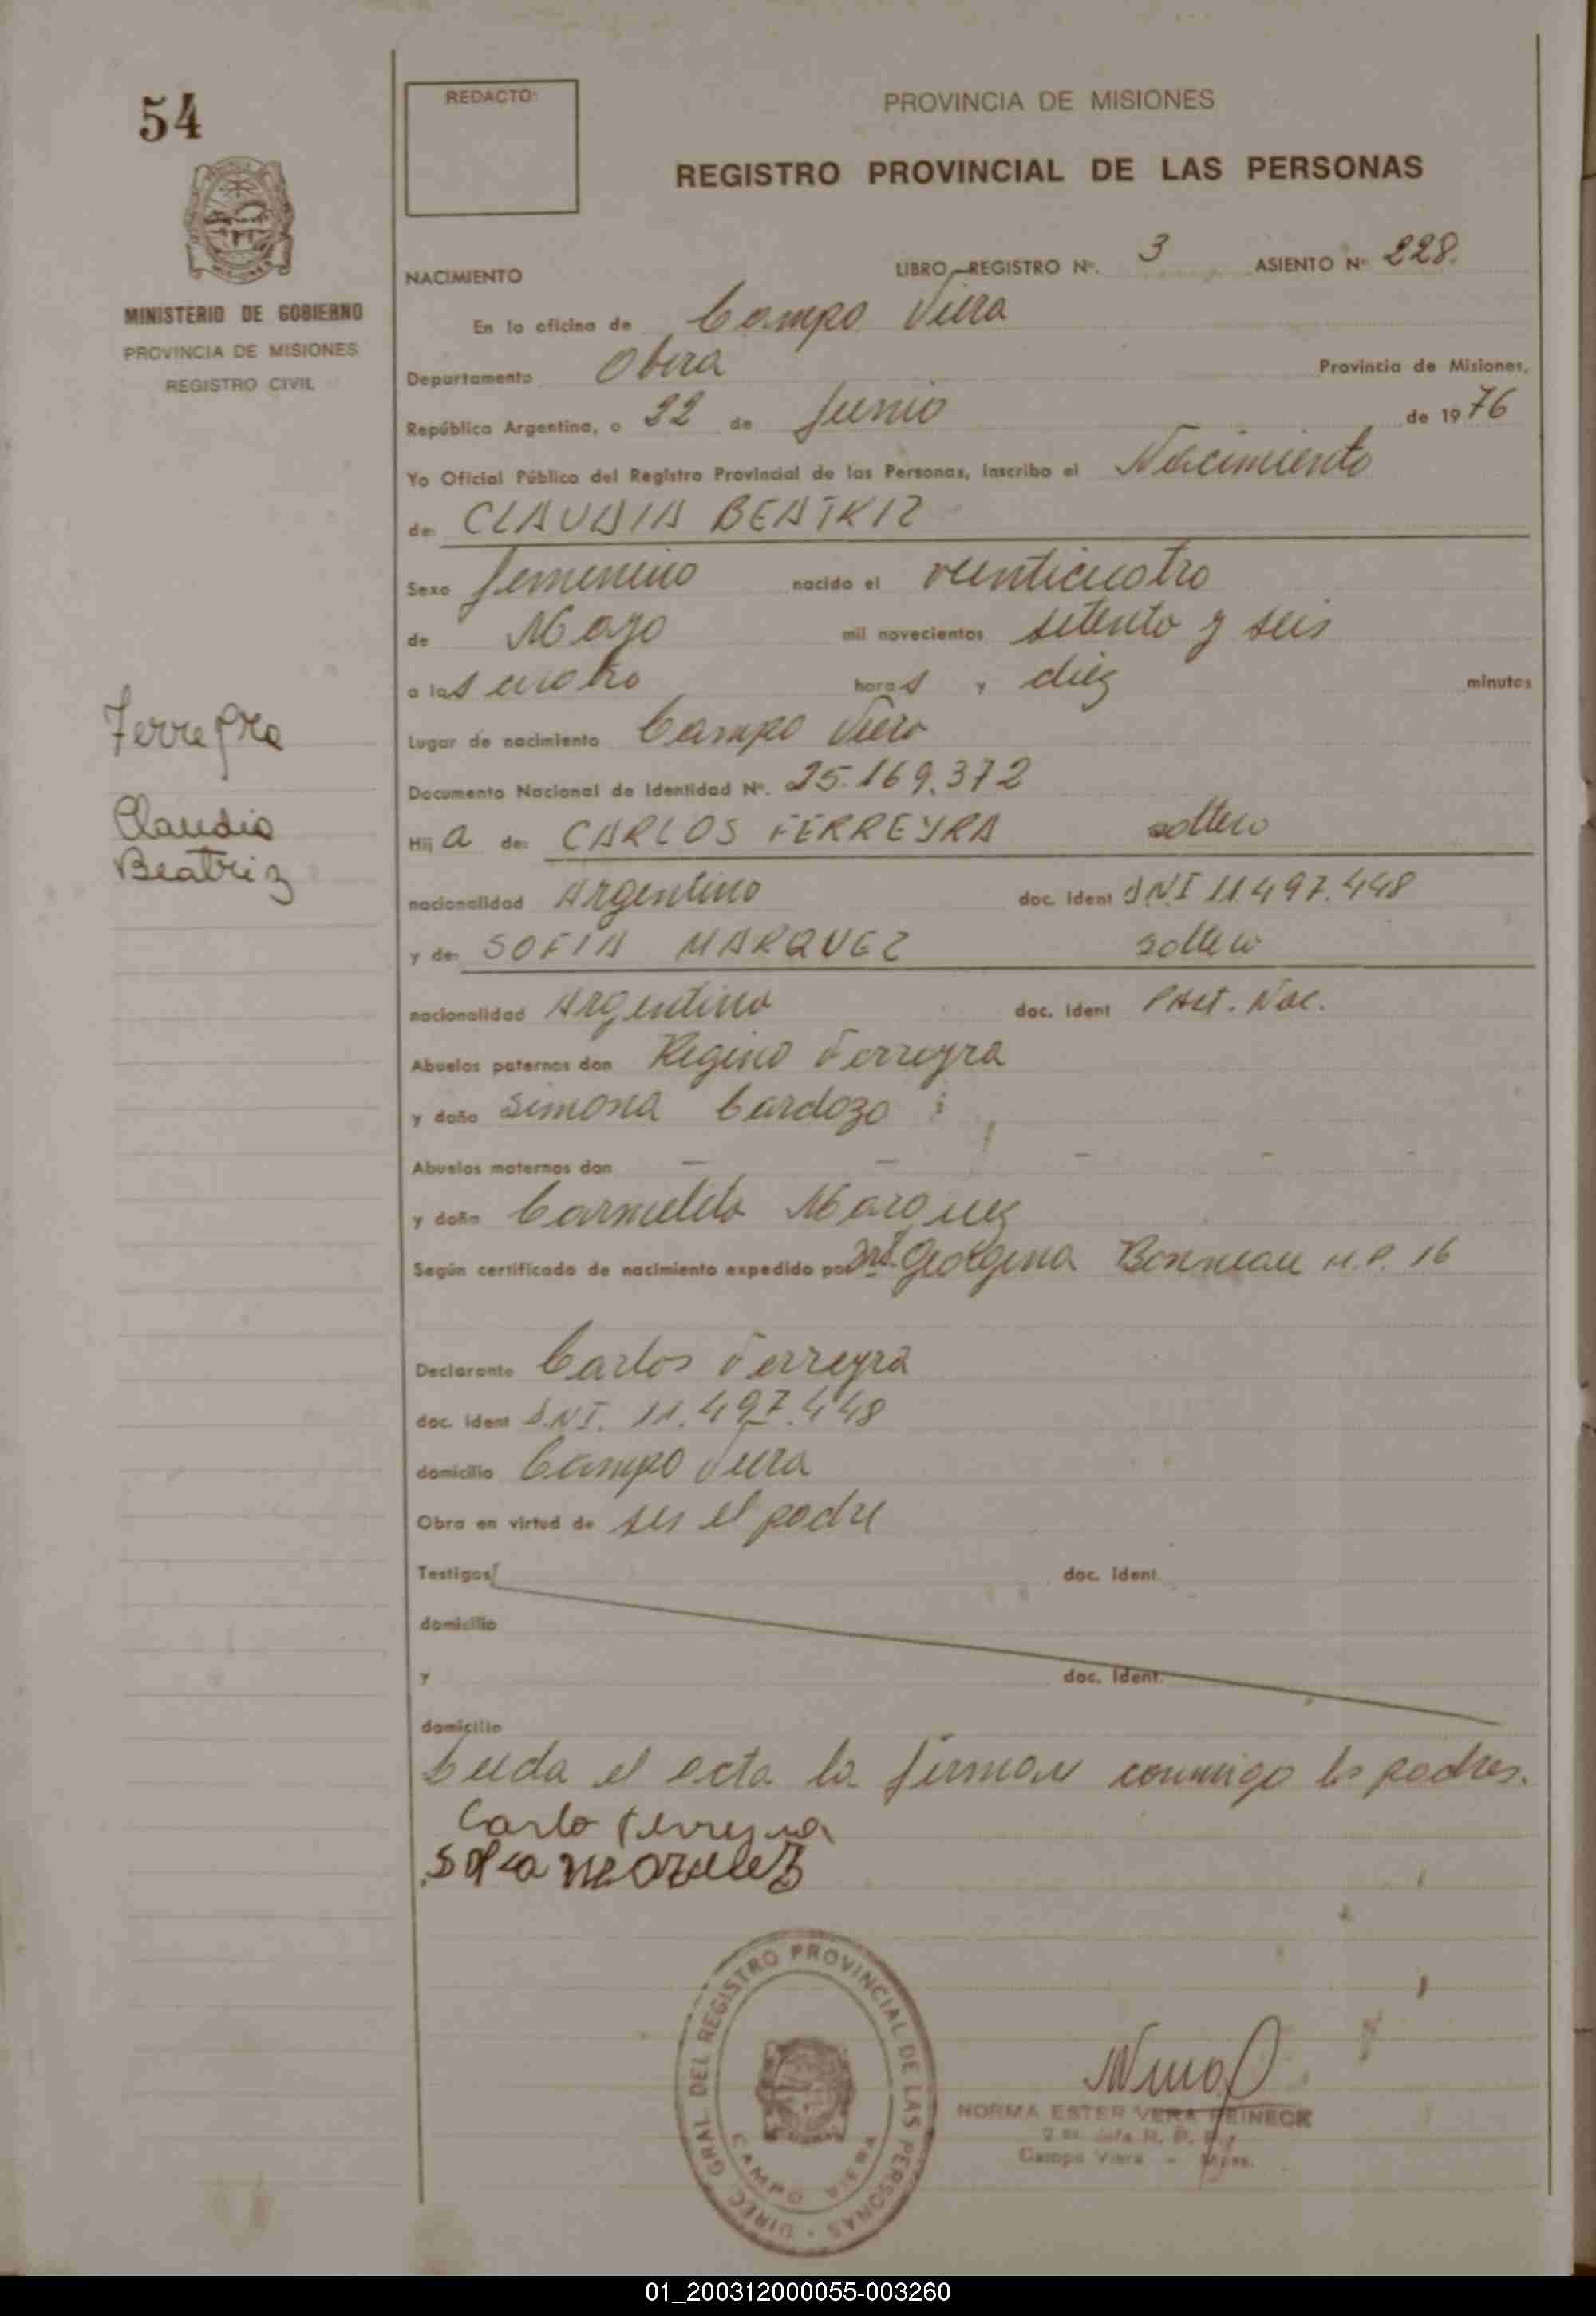 54
REDACTO:
PROVINCIA DE MISIONES
REGISTRO PROVINCIAL DE LAS PERSONAS
MINISTERIO DE GOBIERNO
PROVINCIA DE MISIONES
REGISTRO CIVIL
NACIMIENTO
LIBRO REGISTRO Nº. 3 ASIENTO Nº 228.
En la oficina de Campo Viera
Departamento Obera Provincia de Misiones,
República Argentina, a 22 de Junio de 1976
Yo Oficial Público del Registro Provincial de las Personas, inscribo el Nacimiento
de: CLAUDIA BEATRIZ
Sexo femenino nacido el veinticuatro
de Mayo mil novecientos setenta y seis
a las cuatro horas y diez minutos
Lugar de nacimiento Campo Viera
Documento Nacional de Identidad Nº. 25.169.372
Ferreyra
Claudia
Beatriz
Hij a de: CARLOS FERREYRA soltero
nacionalidad Argentino doc. Ident DNI 11.497.448
y de: SOFIA MARQUEZ soltera
nacionalidad Argentina doc. Ident Nac.
Abuelos paternos don Regino Ferreyra
y doña Simona Cardozo
Abuelos maternos don - - - - -
y doña Carmelita Marquez
Según certificado de nacimiento expedido por Georgina M.P. 16
Declarante Carlos Ferreyra
doc. Ident D.N.I. 11.497.448
domicilio Campo Viera
Obra en virtud de ser el padre
Testigos doc. Ident.
domicilio
y doc. Ident.
domicilio
Leida el acta la firman conmigo los padres.
Carlo Ferreyra
Sofia Marquez
DIREC. GRAL. DEL REGISTRO PROVINCIAL DE LAS PERSONAS
CAMPO VIERA
NORMA ESTER VERA REINECK
Campo Viera - Mnes.
01_200312000055-003260